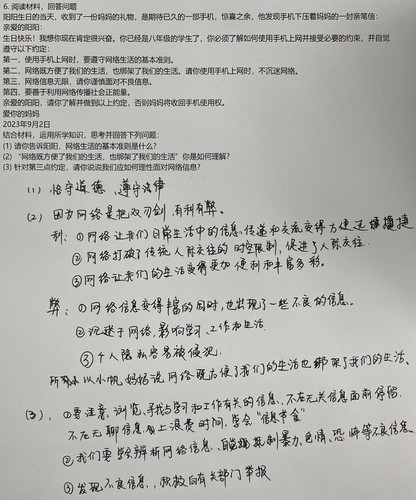 6. 阅读材料，回答问题
阳阳生日的当天，收到了一份妈妈的礼物，是期待已久的一部手机，惊喜之余，他发现手机下压着妈妈的一封亲笔信：
亲爱的阳阳：
生日快乐！我想你现在肯定很兴奋。你已经是八年级的学生了，你必须了解如何使用手机上网并接受必要的约束，并自觉
遵守以下约定：
第一、使用手机上网时，要遵守网络生活的基本准则。
第二、网络既方便了我们的生活，也绑架了我们的生活。请你使用手机上网时，不沉迷网络。
第三、网络信息无限，请你谨慎面对不良信息。
第四、要善于利用网络传播社会正能量。
亲爱的阳阳，请你了解并做到以上约定，否则妈妈将收回手机使用权。
爱你的妈妈
2023年9月2日
结合材料，运用所学知识，思考并回答下列问题：
(1) 请你告诉阳阳，网络生活的基本准则是什么？
(2) “网络既方便了我们的生活，也绑架了我们的生活”你是如何理解？
(3) 针对第三点约定，请你说说我们应如何理性面对网络信息？
(1) 恪守道德、遵守法律
(2) 因为网络是把双刃剑，有利有弊。
利：①网络让我们日常生活中的信息传递和交流变得方便迅捷
②网络打破了传统人际交往的时空限制，促进了人际交往
③网络让我们的生活变得更加便利和丰富多彩。
弊：①网络信息变得丰富的同时，也出现了一些不良的信息。
②沉迷于网络，影响学习、工作和生活
③个人隐私容易被侵犯
所以小帆妈妈说网络既方便了我们的生活也绑架了我们的生活。
(3)、①要注意浏览、寻找与学习和工作有关的信息，不在无关信息面前停留，
不在无聊信息上浪费时间，学会“信息节食”
②我们要学会辨析网络信息，自觉抵制暴力、色情、恐怖等不良信息。
③发现不良信息，积极向有关部门举报